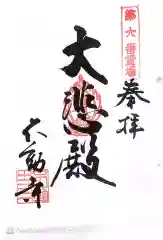 第六番霊場
奉拝
大悲殿
不動寺